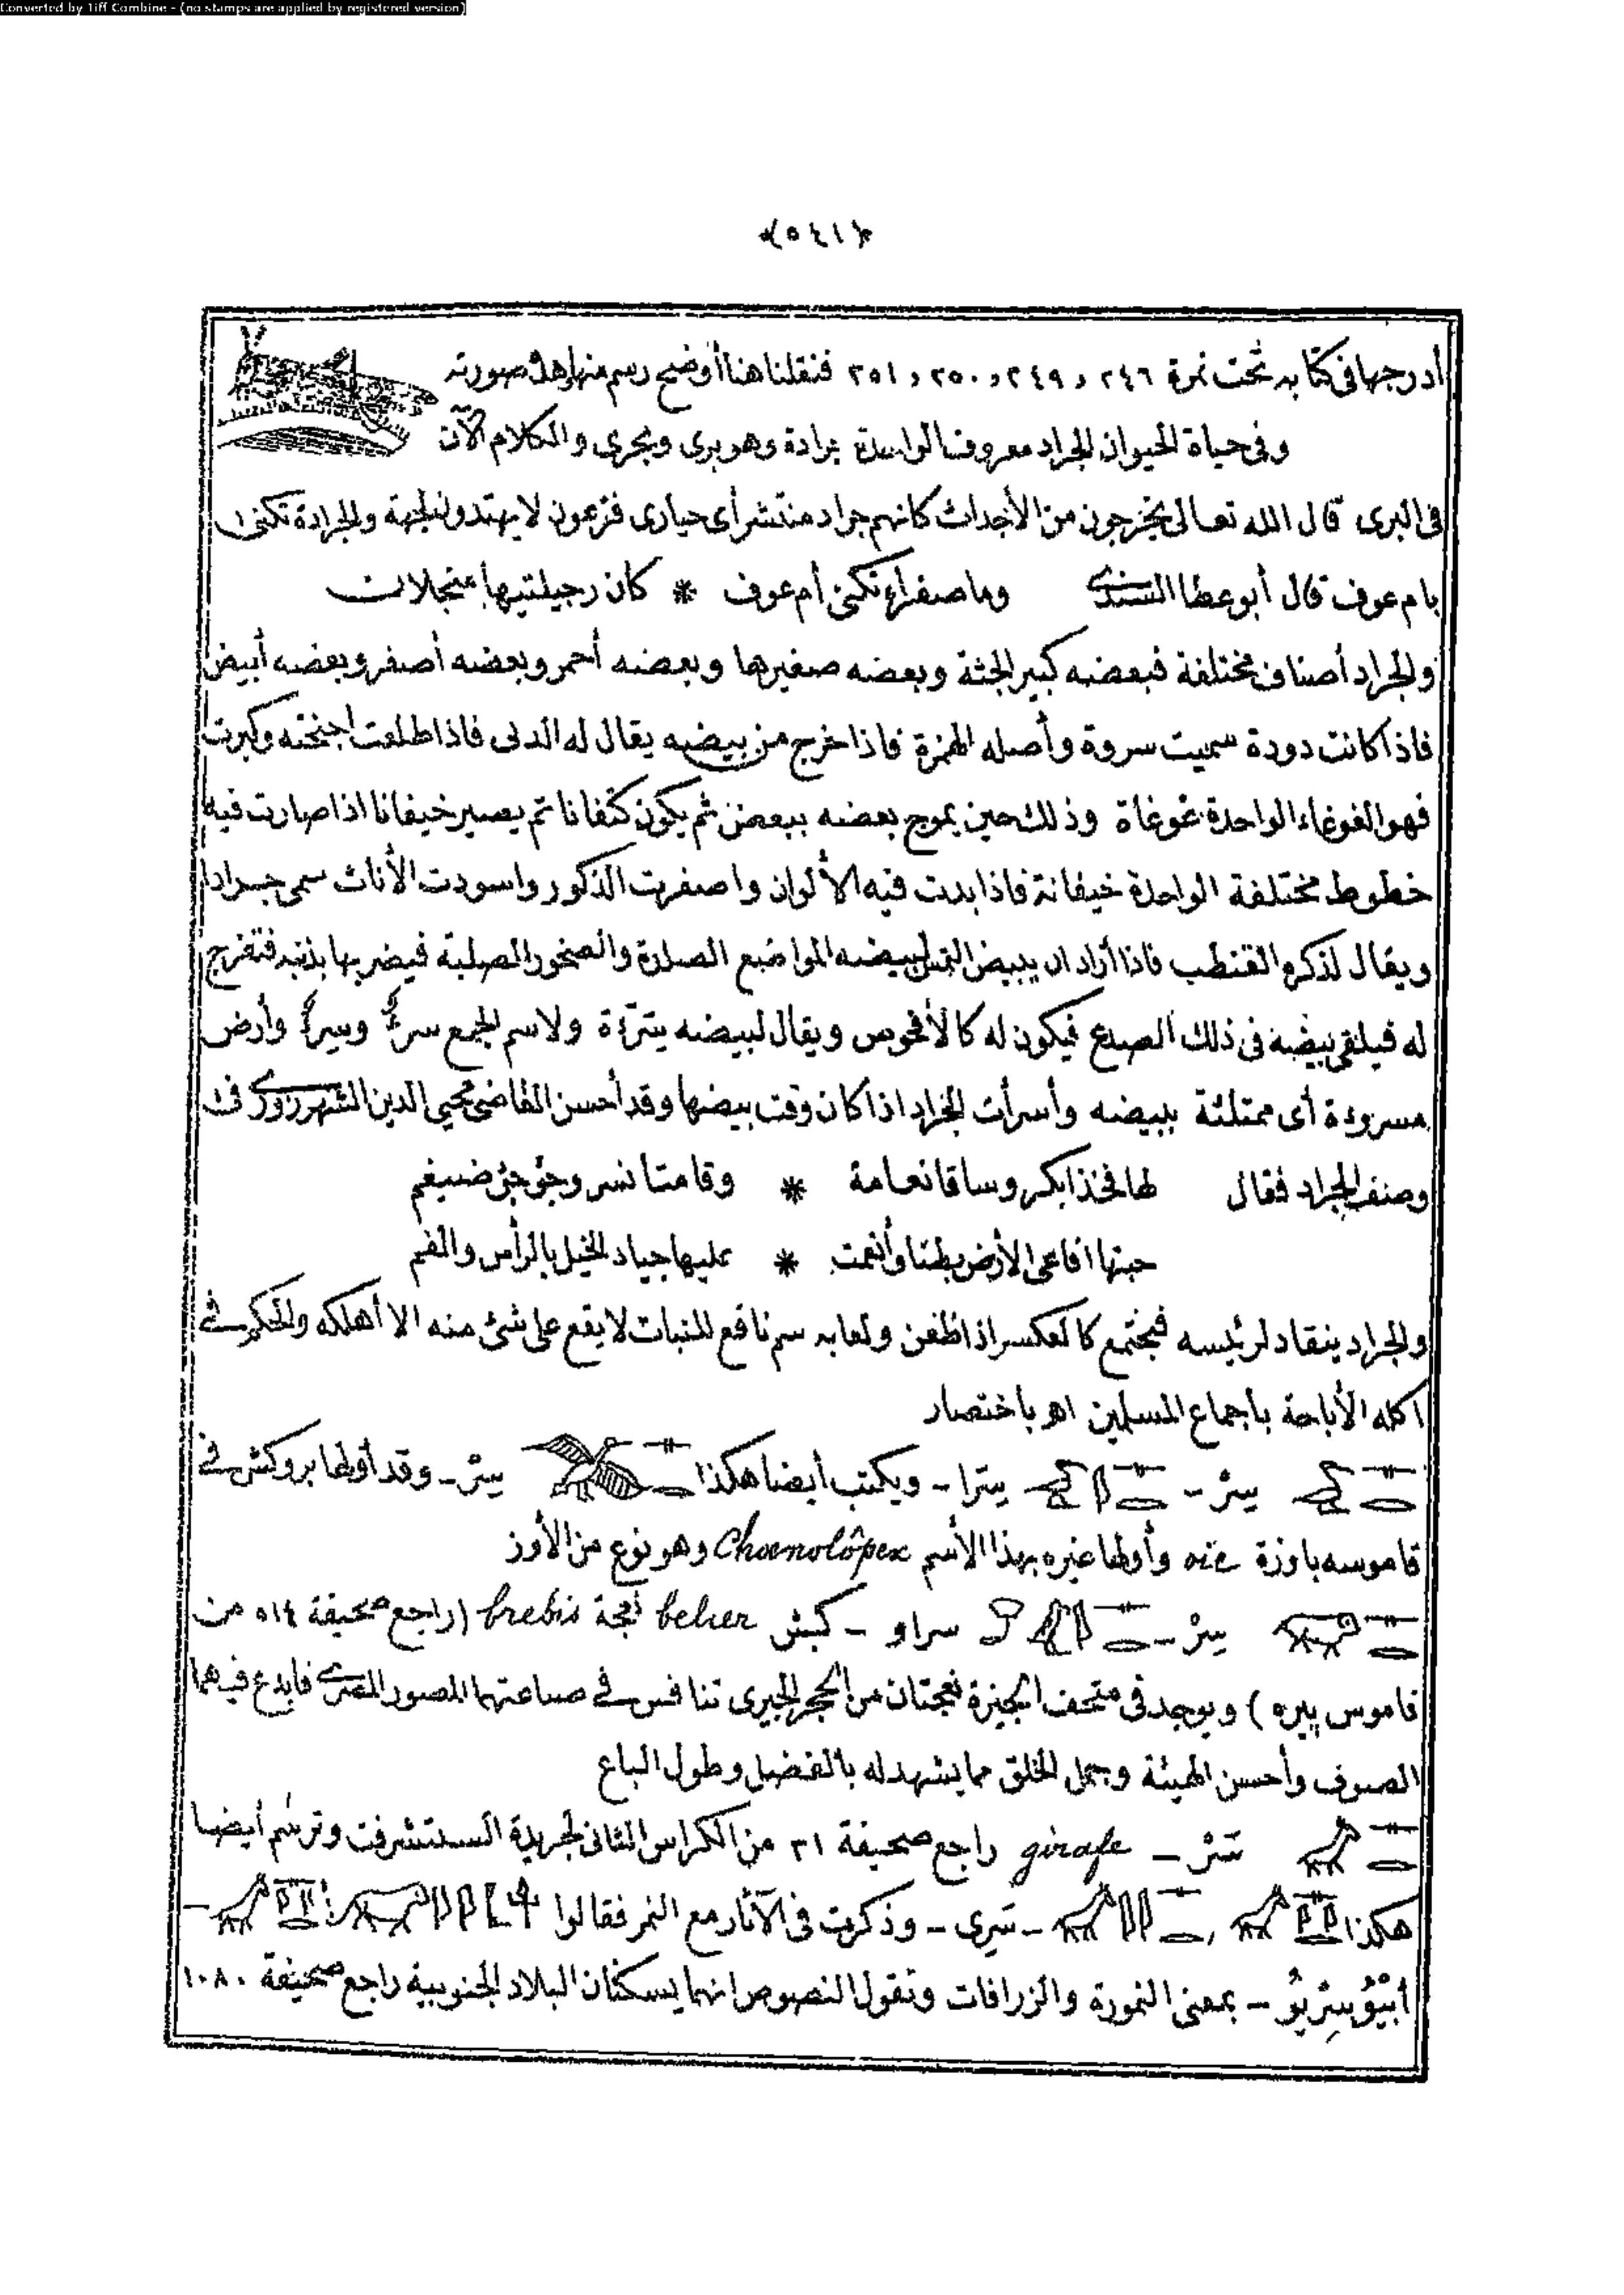 Converted by Tiff Combine - (no stamps are applied by registered version)
﴿٥٤١﴾
أدرجها فى كتابه تحت نمرة ٢٤٦ و ٢٤٩ و ٢٥٠ و ٢٥١ فنقلنا هنا أوضح رسم منها وهذه صورته
وفى حياة الحيوان الجراد معروف الواحدة جرادة وهو برى وبحرى والكلام الآن
فى البرى قال الله تعالى يخرجون من الأجداث كانهم جراد منتشر أى حيارى فزعون لا يهتدون لجهة والجرادة تكنى
بام عوف قال أبو عطا السندى وما صفراء تكنى أم عوف * كان رجيلتيها منجلات
والجراد أصناف مختلفة فبعضه كبير الجثة وبعضه صغيرها وبعضه أحمر وبعضه أصفر وبعضه أبيض
فاذا كانت دودة سميت سروة وأصله الهمزة فاذا خرج من بيضه يقال له الدبى فاذا طلعت اجنحته وكبرت
فهو الغوغاء الواحدة غوغاة وذلك حين يموج بعضه ببعض ثم يكون كتفانا ثم يصير خيفانا اذا صارت فيه
خطوط مختلفة الواحدة خيفانة فاذا بدت فيه الألوان واصفرت الذكور واسودت الأناث سمى جرادا
ويقال لذكره القنطب فاذا أراد ان يبيض التمس لبيضه المواضع الصلدة والصخور الصلبة فيضربها بذنبه فتفرج
له فيلقى بيضه فى ذلك الصدع فيكون له كالأفحوص ويقال لبيضه سرأة ولاسم الجمع سرء وسرء وأرض
مسروءة أى ممتلئة ببيضه وأسرأت الجراد اذا كان وقت بيضها وقد أحسن القاضى محيى الدين الشهرزورى فى
وصف الجراد فقال لها فخذا بكر وساقا نعامة * وقامتا نسر وجؤجؤ ضيغم
حبتها افاعى الأرض بطنا وأنعمت * عليها جياد الخيل بالرأس والفم
والجراد ينقاد لرئيسه فيجتمع كالعكسر اذا ظفن ولعابه سم نافع للنبات لا يقع على شئ منه الا أهلكه والحكم فى
اكله الأباحة باجماع المسلمين اهـ باختصار
سِرْ - سِترا - ويكتب أيضا هكذا سِرْ - وقد أولها بروكش فى
قاموسه باوزة oie وأولها غيره بهذا الأسم Chœnolôpex وهو نوع من الأوز
سِرْ - سراو - كبش belier نعجة brebis (راجع صحيفة ٥١٤ من
قاموس پيره) ويوجد فى متحف الجيزة نعجتان من الحجر الجيرى تنافس فى صناعتهما المصور المصرى فابدع فيهما
الصوف وأحسن الهيئة وجمل الخلق مما يشهد له بالفضل وطول الباع
سَرْ - girafe راجع صحيفة ٣١ من الكراس الثانى لجريدة السنتشرفت وترسم أيضا
هكذا , - سَرِى - وذكرت فى الآثار مع النمر فقالوا -
أبْيُو سِرْيُو - بمعنى النمورة والزرافات وتقول النصوص انهما يسكنان البلاد الجنوبية راجع صحيفة ١٠٨٠